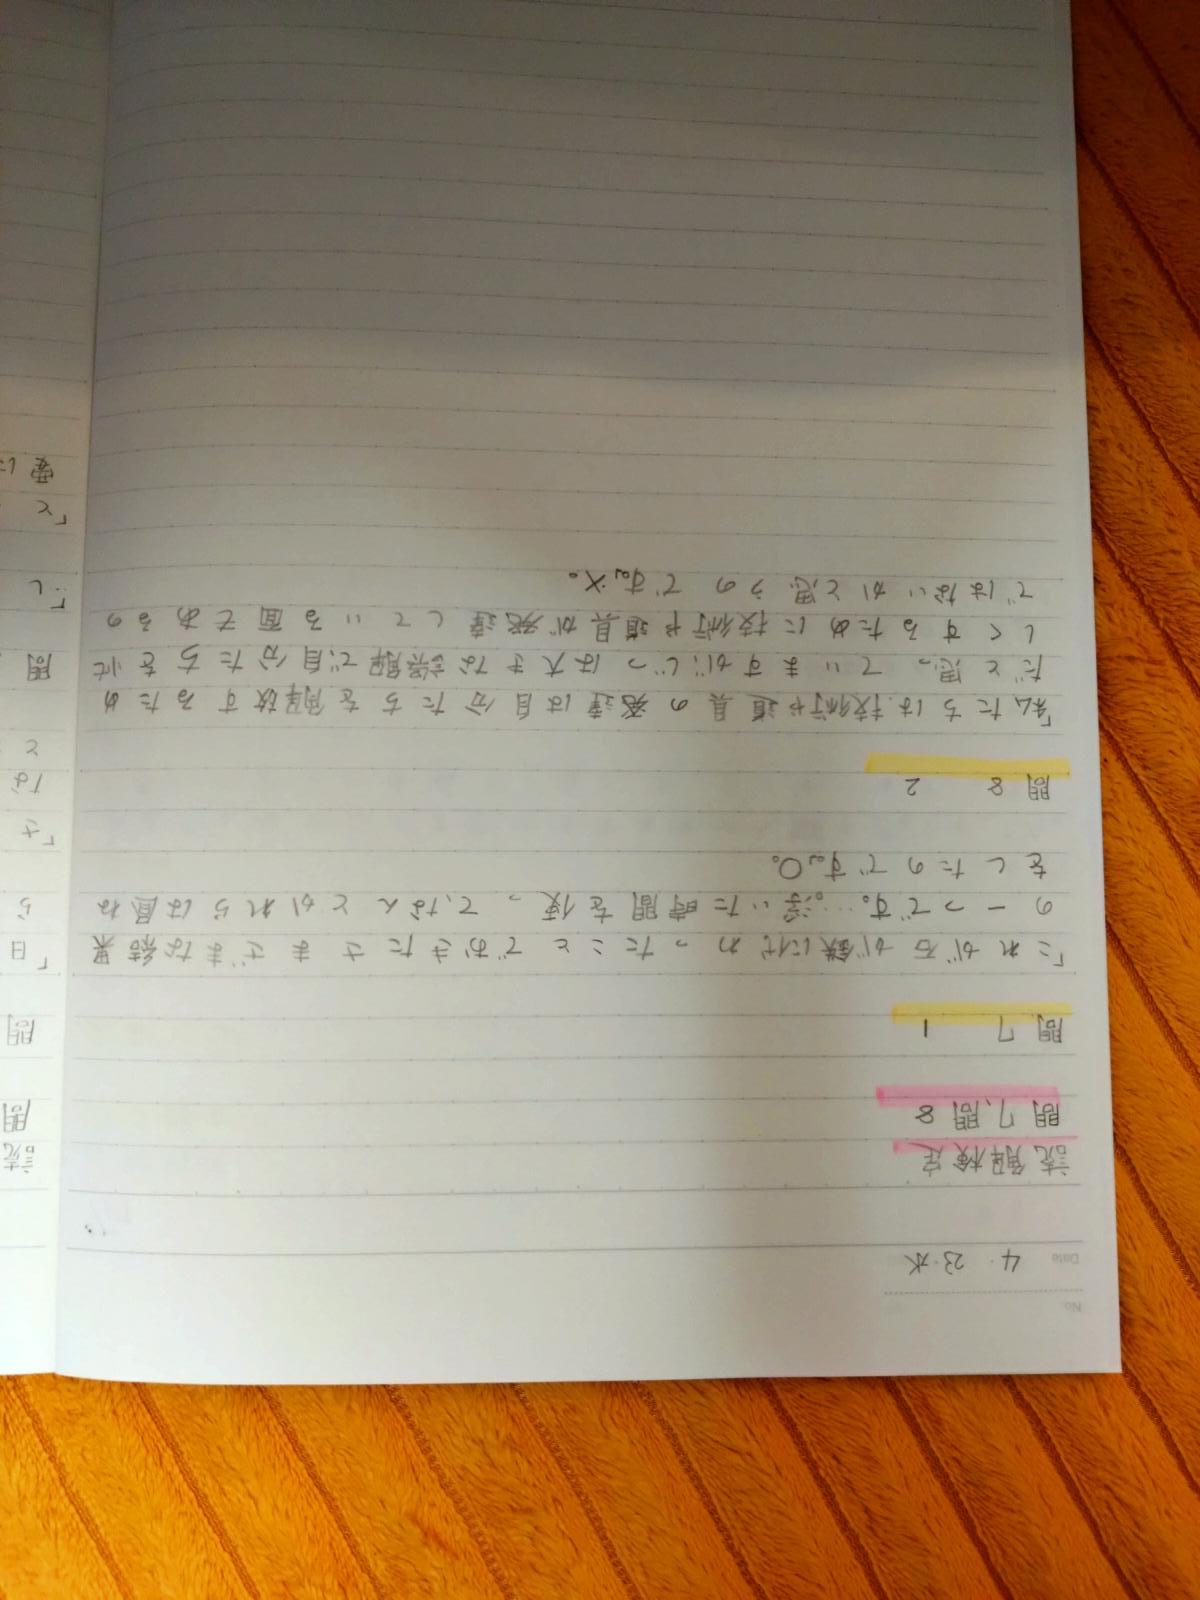 No.
Date 4・23・水
読解検定
問7、問8
問7 1
「これが石が鉄に代わったことでおきたさまざまな結果
の一つです。…浮いた時間を使って、なんとかれらは昼ね
をしたのです。」○。
問8 2
「私たちは技術や道具の発達は自分たちを解放するため
だと思っていますがじつは大きな誤解で自分たちを忙
しくするために技術や道具が発達している面もあるの
ではないかと思うのです。」×。